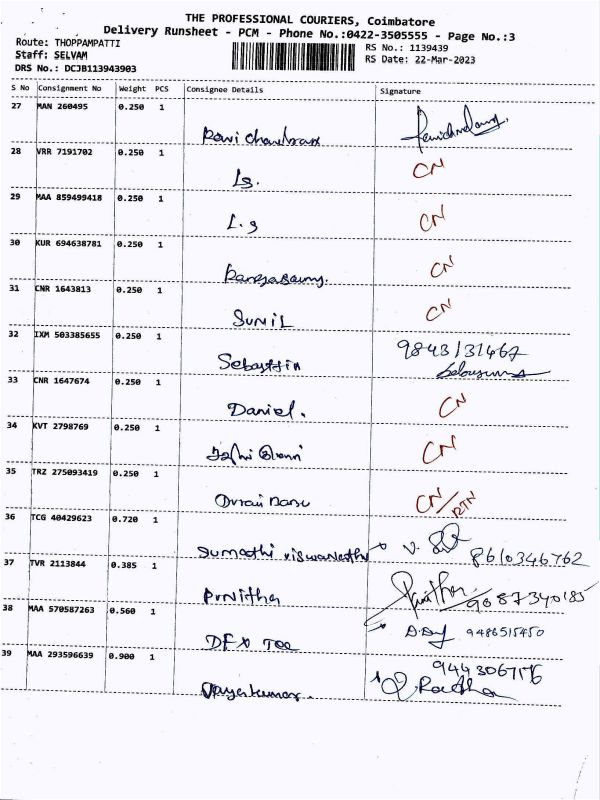 THE PROFESSIONAL COURIERS, Coimbatore
Delivery Runsheet - PCM - Phone No.:0422-3505555 - Page No.:3
Route: THOPPAMPATTI
Staff: SELVAM
DRS No.: DCJB113943903
RS No.: 1139439
RS Date: 22-Mar-2023
S No Consignment No Weight PCS Consignee Details Signature
27 MAN 260495 0.250 1
Ravi chandran
28 VRR 7191702 0.250 1
Lg. CN
29 MAA 859499418 0.250 1
L.g CN
30 KUR 694638781 0.250 1
Rangasamy. CN
31 CNR 1643813 0.250 1
SUNIL CN
32 IXM 503385655 0.250 1
9843131467
Sebastin
33 CNR 1647674 0.250 1
Daniel. CN
34 KVT 2798769 0.250 1
CN
35 TRZ 275093419 0.250 1
CN/RTN
36 TCG 40429623 0.720 1
Sumathi viswanathn 8610346762
37 TVR 2113844 0.385 1
Punitha
38 MAA 570587263 0.560 1
9486515450
39 MAA 293596639 0.900 1
Vijayakumar.